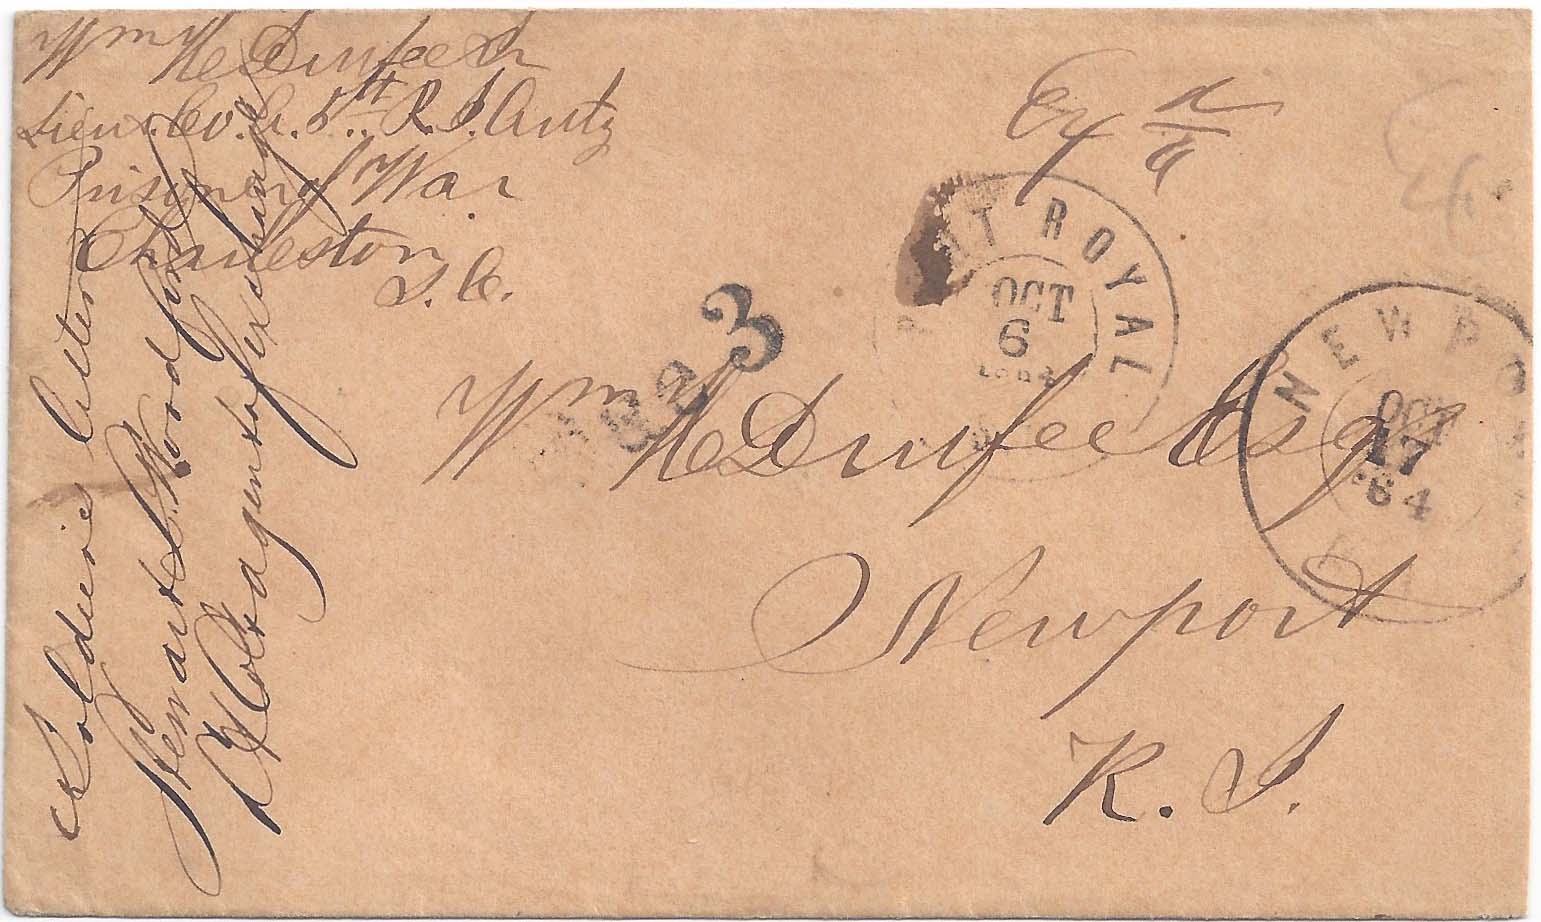 Wm H Durfee Jr
Lieut. Co. A. 5th R. I. Arty
Prisoner of War
Charleston
S. C.
Ex
PORT ROYAL
OCT
6
1864
S
Due 3
NEWPORT
OCT
17
'64
R.I.
Wm H Durfee Esq
Newport
R. I.
Soldier's letter
Stewart L. Woodford
Lt Col & agent of Exchange